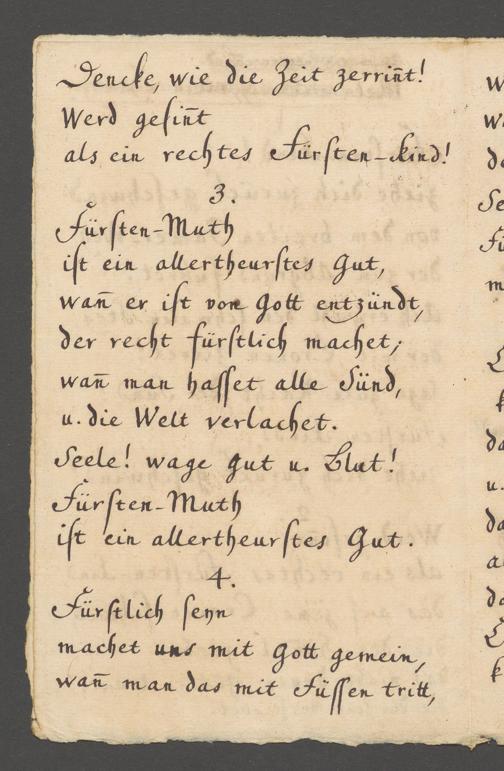 Dencke, wie die Zeit zerrin̄t!
Werd gesin̄t
als ein rechtes Fürsten-Kind!
3.
Fürsten-Muth
ist ein allertheurstes Gut,
wan̄ er ist von Gott entzündt,
der recht fürstlich machet,
wan̄ man hasset alle Sünd,
u. die Welt verlachet.
Seele! wage Gut u. Blut!
Fürsten-Muth
ist ein allertheurstes Gut.
4.
Fürstlich seyn
machet uns mit Gott gemein,
wan̄ man das mit Füssen tritt,